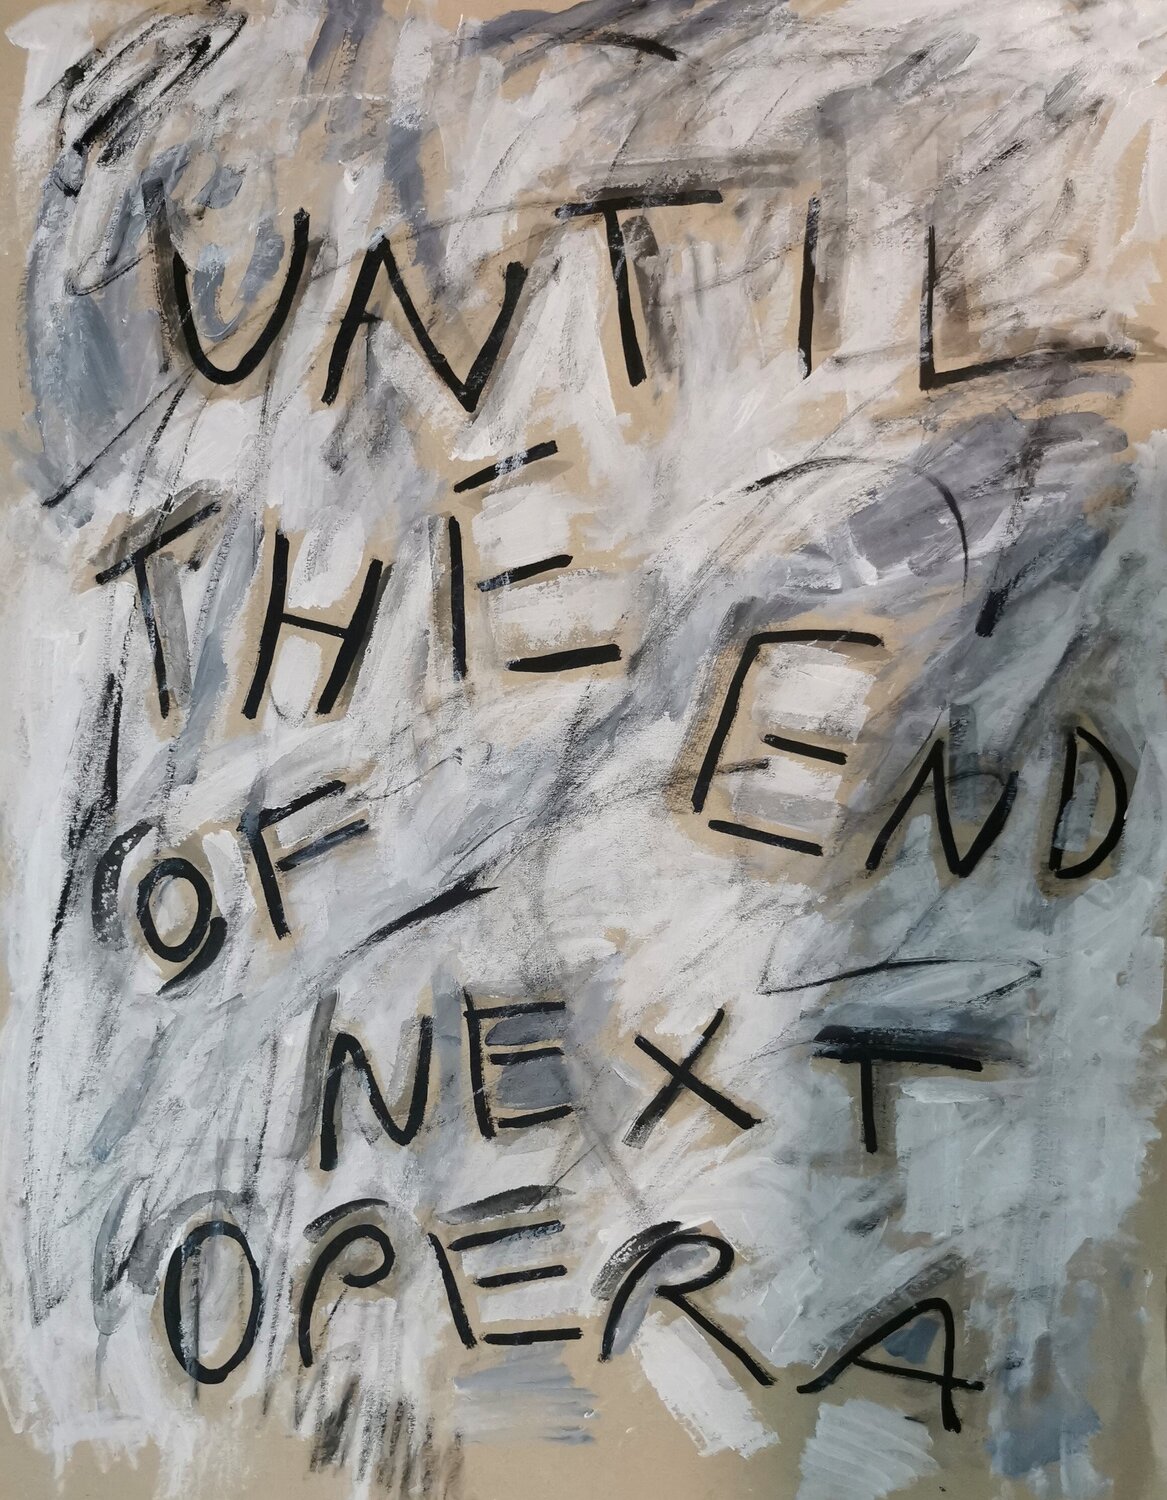 UNTIL
THE END
OF
NEXT
OPERA